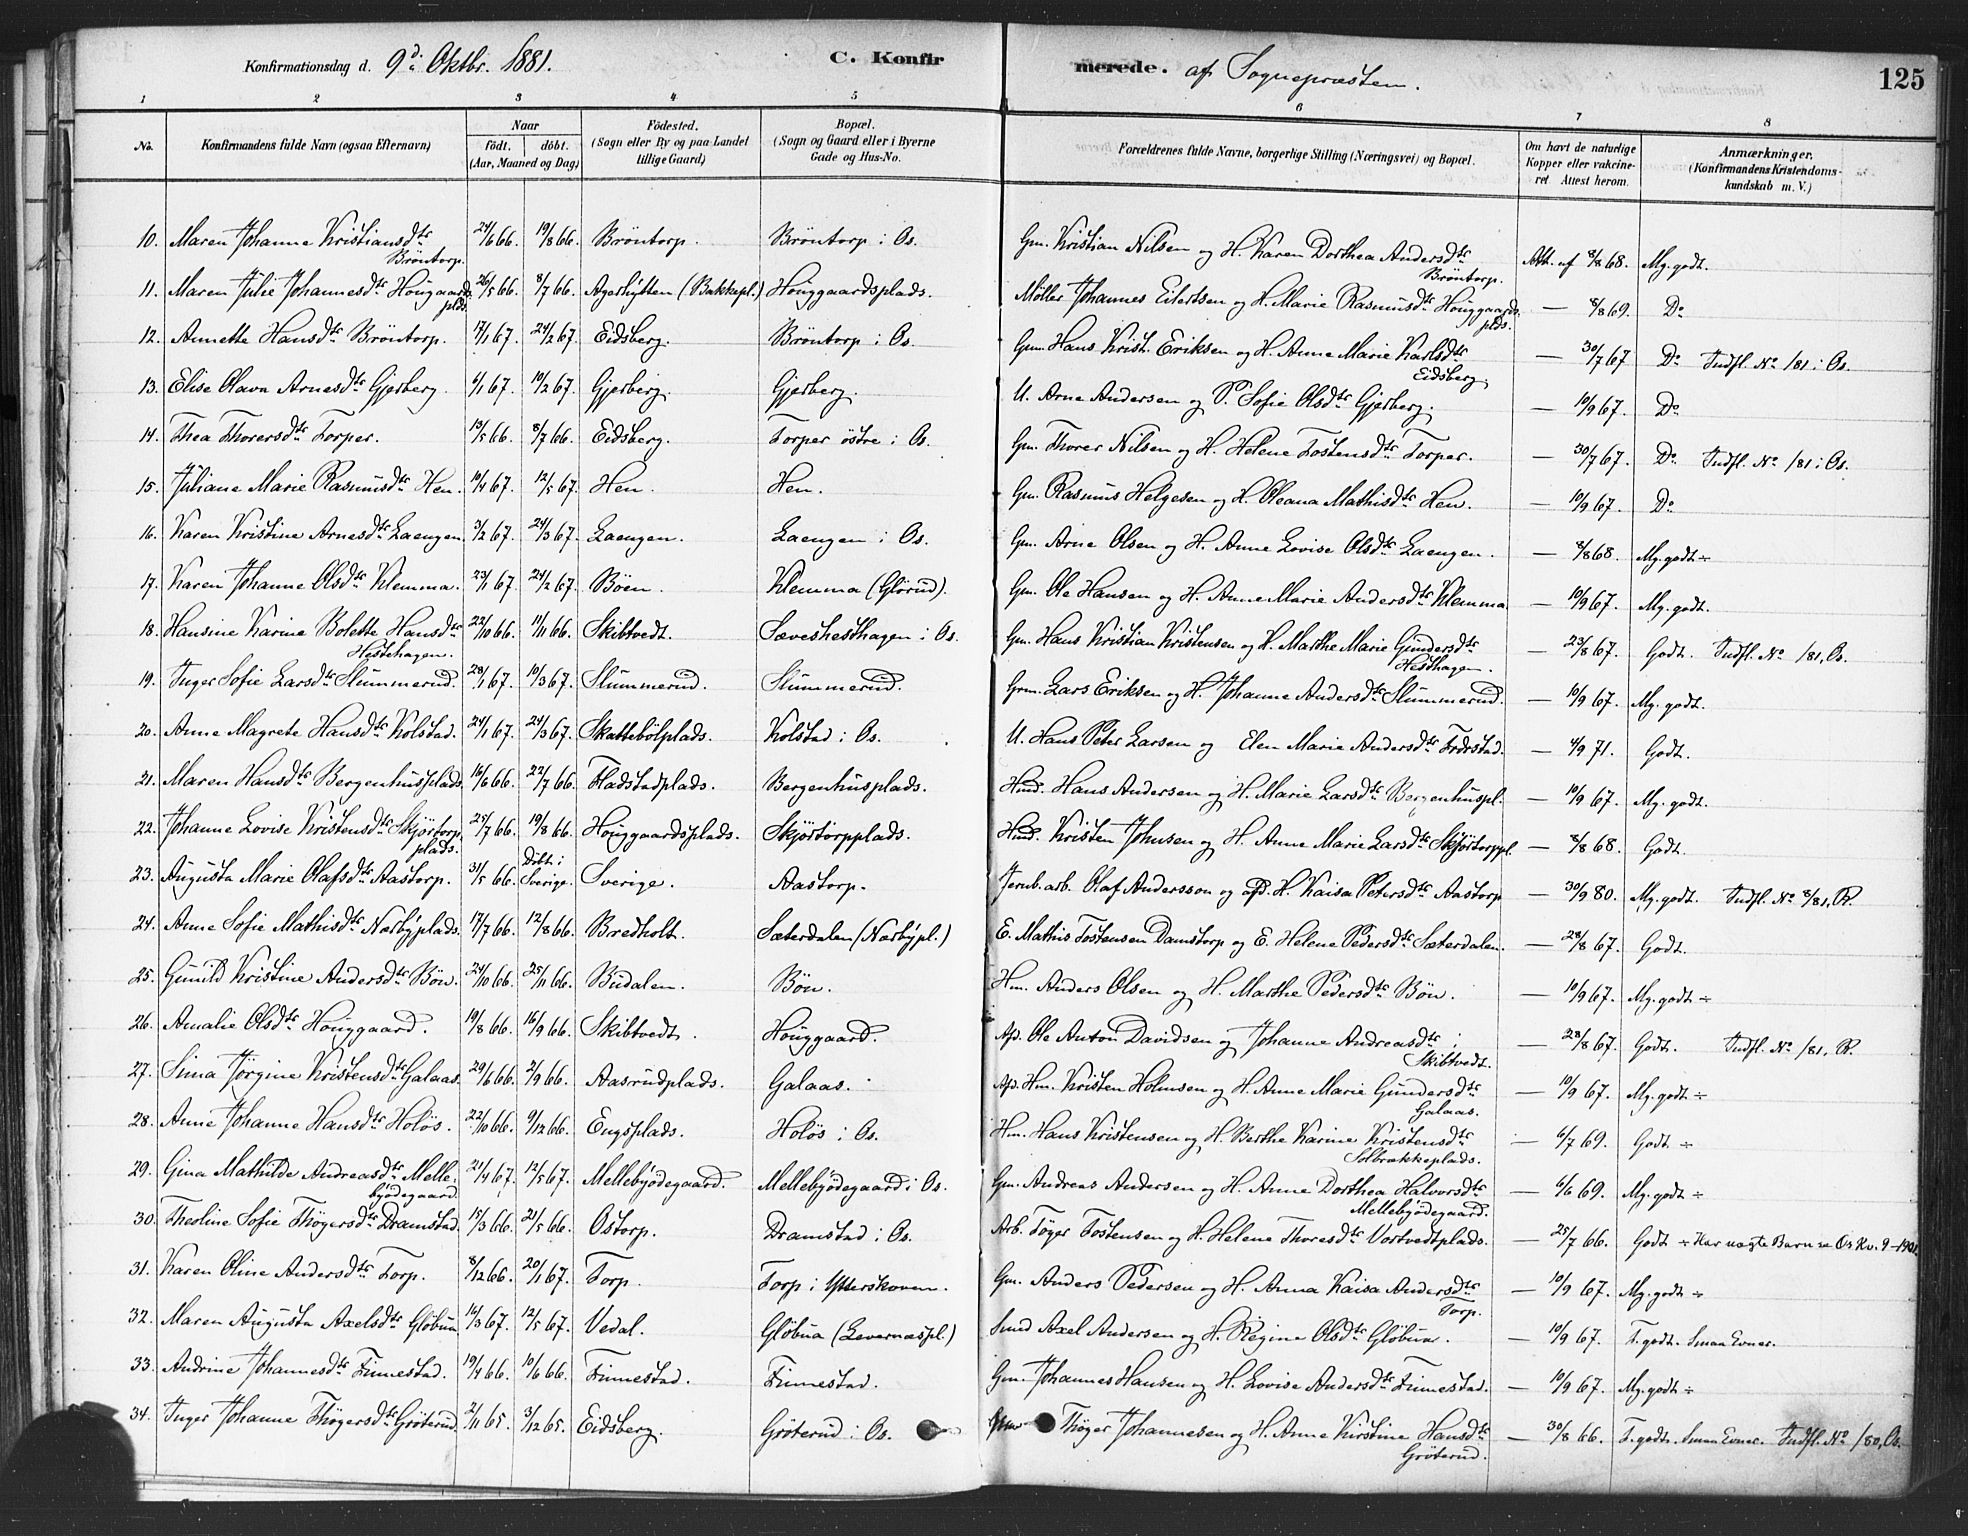 Konfirmationsdag d. 9d. Oktbr. 1881.
C. Konfirmerede. af Sognepræsten.
125
1 2 3 4 5 6 7 8
No.
Konfirmandens fulde Navn (ogsaa Efternavn)
Naar
født. døbt.
(Aar, Maaned og Dag)
Födested.
(Sogn eller By og paa Landet
tillige Gaard)
Bopæl.
(Sogn og Gaard eller i Byerne
Gade og Hus-No.
Forældrenes fulde Navne, borgerlige Stilling (Næringsvei) og Bopæl.
Om havt de naturlige
Kopper eller vakcine-
ret Attest herom.
Anmærkninger.
(Konfirmandens Kristendoms-
kundskab m. V.)
10. Maren Johanne Kristiansdtr Bröntorp. 24/6 66. 19/8 66. Bröntorp. Bröntorp i Os. Gm. Kristian Nilsen og H. Karen Dorthea Andersdtr Bröntorp. Att. af 8/8 68. Mg. godt.
11. Maren Julie Johannesdtr Hougaards plds. 26/5 66. 8/7 66. Agerhytten (Bakkepl.) Houggaardsplads. Möller Johannes Eilertsen og H. Marie Rasmusdtr Houggaards plds. — 8/8 69. Do
12. Annette Hansdtr Bröntorp. 17/1 67. 24/2 67. Eidsberg. Bröntorp i Os. Gm. Hans Krist. Eriksen og H. Anne Marie Karlsdtr Eidsberg. — 30/7 67 Do Indfl. No 1/81 i Os.
13. Elise Olava Arnesdtr Gjerberg. 6/1 67. 10/2 67. Gjerberg. Gjerberg. U. Arne Andersen og P. Sofie Olsdtr Gjerberg. — 10/9 67. Do
14. Thea Thorersdtr Torper. 13/5 66. 8/7 66. Eidsberg. Torper östre i Os. Gm. Thorer Nilsen og H. Helene Tostensdtr Torper. — 30/7 67. Do Indfl. No 1/81 i Os.
15. Juliane Marie Rasmusdtr Hen. 10/4 67. 12/5 67. Hen. Hen. Gm. Rasmus Helgesen og H. Oleana Mathisdtr Hen. — 10/9 67. Do
16. Karen Kristine Arnesdtr Laengen. 3/2 67. 24/3 67. Laengen. Laengen i Os. Gm. Arne Olsen og H. Anne Lovise Olsdtr Laengen. — 8/8 68. Mg. godt ÷
17. Karen Johanne Olsdtr Klemma. 23/1 67. 24/2 67. Böen. Klemma (Glörud). Gm. Ole Hansen og H. Anne Marie Andersdtr Klemma — 10/9 67. Mg. godt.
18. Hansine Karine Bolette Hansdtr Hestehagen. 22/10 66. 11/11 66. Skibtvedt. Sæveshesthagen i Os. Gm. Hans Kristian Kristensen og H. Marthe Marie Gundersdtr Hesthagen. — 23/8 67. Godt. Indfl. No 1/81, Os.
19. Inger Sofie Larsdtr Slummerud. 28/1 67. 10/3 67. Slummerud. Slummerud. Grm. Lars Eriksen og H. Johanne Andersdtr Slummerud. — 10/9 67. Mg. godt.
20. Anne Magrete Hansdtr Kolstad. 24/1 67. 24/3 67. Skattebölplads. Kolstad i Os. U. Hans Peter Larsen og Elen Marie Andersdtr — 4/9 71. Godt.
21. Maren Hansdtr Bergenhusplads. 16/6 66. 22/7 66. Fladstadplads. Bergenhusplads. Hmd. Hans Andersen og H. Marie Larsdtr Bergenhuspl. — 10/9 67. Mg. godt.
22. Johanne Lovise Kristensdtr Skjörtorp plads. 25/7 66. 19/8 66. Houggaardsplads. Skjörtorpplads. Hmd. Kristen Johnsen og H. Anne Marie Larsdtr Skjörtorppl. — 8/8 68. Godt.
23. Augusta Marie Olafsdtr Aastorp. 31/5 66. Döbt i Sverige. Sverige. Aastorp. Jernb. arb. Olaf Andersson og afd. H. Kaisa Petersdtr Aastorp — 30/9 80. Mg. godt. Indfl. No 8/81, R.
24. Anne Sofie Mathisdtr Narbyplads. 17/7 66. 12/8 66. Bredholt. Sæterdalen (Narbypl.) E. Mathis Tostensen Damstorp og E. Helene Pedersdtr Sæterdalen. — 28/8 67. Godt.
25. Gunild Kristine Andersdtr Bön. 24/10 66. 25/11 66. Budalen. Bön. Hm. Anders Olsen og H. Marthe Pedersdtr Bön. — 10/9 67. Mg. godt ÷
26. Amalie Olsdtr Houggaard. 19/8 66. 16/9 66. Skibtvedt. Houggaard. Ap. Ole Anton Davidsen og Johanne Andreasdtr i Skibtvedt. — 28/8 67. Godt. Indfl. No 1/81, R.
27. Sina Jörgine Kristensdtr Galaas. 29/6 66. 2/9 66. Aasrudplads. Galaas. Ap. Hm. Kristen Holmsen og H. Anne Marie Gundersdtr Galaas. — 10/9 67. Mg. godt ÷
28. Anne Johanne Hansdtr Holös. 22/10 66. 9/12 66. Engsplads. Holös i Os. Hm. Hans Kristensen og H. Berthe Karine Kristensdtr Solbrækkeplads. — 6/7 69. Godt ÷
29. Gina Mathilde Andreasdtr Melle- byödegaard 21/4 67. 12/5 67. Mellebyödegaard. Mellebyödegaard i Os. Gm. Andreas Andersen og H. Anne Dorthea Halvorsdtr Mellebyödegaard. — 6/6 69. Mg. godt ÷
30. Therline Sofie Thögersdtr Dramstad. 15/3 66. 21/5 66. Ostorp. Dramstad i Os. Arb. Töger Tostensen og H. Helene Thoresdtr Vortvedtplads. — 25/7 66. Godt ÷ Har uægte Barn se Os Kv. 9 - 1901
31. Karen Oline Andersdtr Torp. 8/12 66. 20/1 67. Torp. Torp i Ytterskoven. Gm. Anders Pedersen og H. Anna Kaisa Andersdtr Torp. — 10/9 67. Mg. godt ÷
32. Maren Augusta Axelsdtr Glöbua 16/3 67. 12/5 67. Vedal. Glöbua (Levernæspl.) Smed Axel Andersen og H. Regine Olsdtr Glöbua. — 10/9 67. T. godt. Smaa Evner.
33. Andrine Johannesdtr Finnestad. 19/4 66. 10/6 66. Finnestad. Finnestad. Gm. Johannes Hansen og H. Lovise Andersdtr Finnestad. — 10/9 67. Mg. godt ÷
34. Inger Johanne Thögersdtr Gröterud. 2/11 65. 3/12 65. Eidsberg. Gröterud i Os. Gm. Thöger Johannesen og H. Anne Kirstine Hansdtr Gröterud. — 30/8 66. T. godt. Smaa Evner. Indfl. No 1/80, Os.